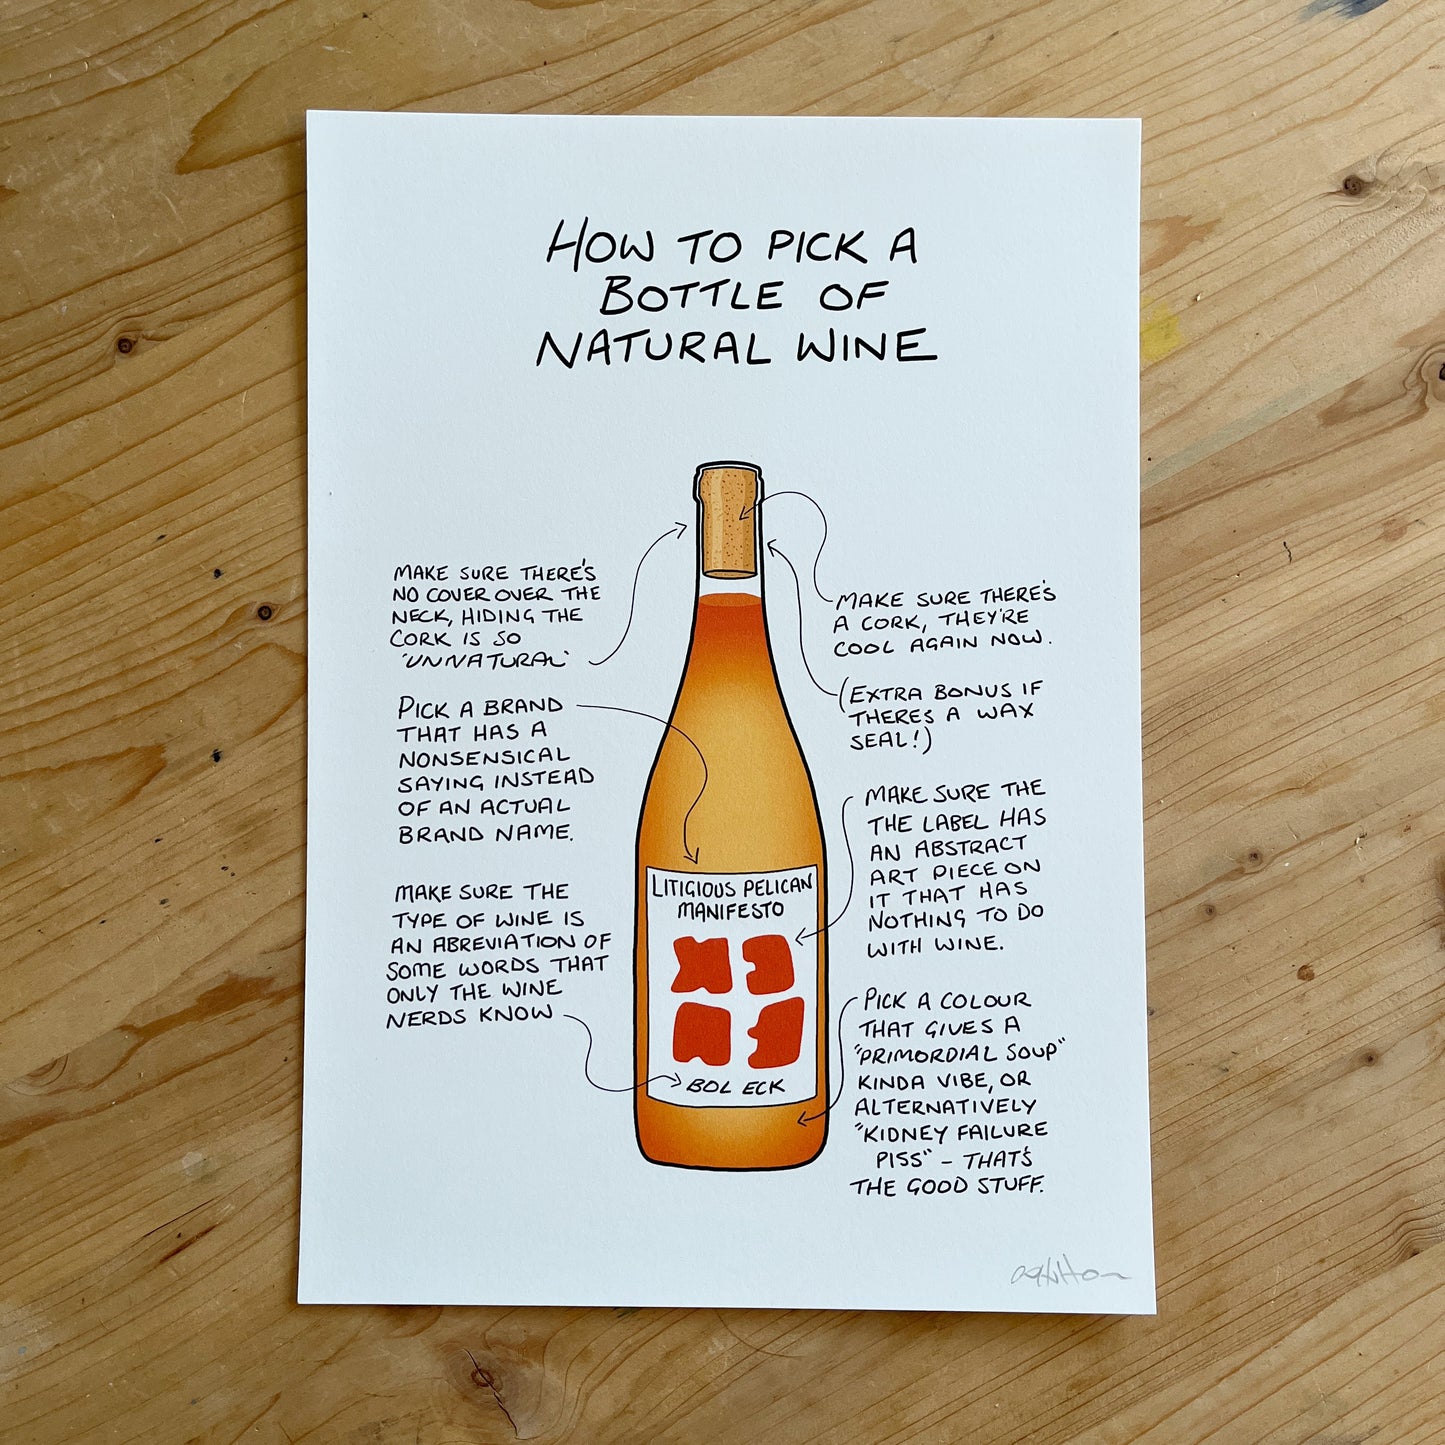 HOW TO PICK A
BOTTLE OF
NATURAL WINE
MAKE SURE THERE'S
NO COVER OVER THE
NECK, HIDING THE
CORK IS SO
'UNNATURAL'
PICK A BRAND
THAT HAS A
NONSENSICAL
SAYING INSTEAD
OF AN ACTUAL
BRAND NAME.
MAKE SURE THE
TYPE OF WINE IS
AN ABREVIATION OF
SOME WORDS THAT
ONLY THE WINE
NERDS KNOW
MAKE SURE THERE'S
A CORK, THEY'RE
COOL AGAIN NOW.
(EXTRA BONUS IF
THERE'S A WAX
SEAL!)
MAKE SURE THE
THE LABEL HAS
AN ABSTRACT
ART PIECE ON
IT THAT HAS
NOTHING TO DO
WITH WINE.
PICK A COLOUR
THAT GIVES A
"PRIMORDIAL SOUP"
KINDA VIBE, OR
ALTERNATIVELY
"KIDNEY FAILURE
PISS" - THAT'S
THE GOOD STUFF.
LITIGIOUS PELICAN
MANIFESTO
BOL ECK